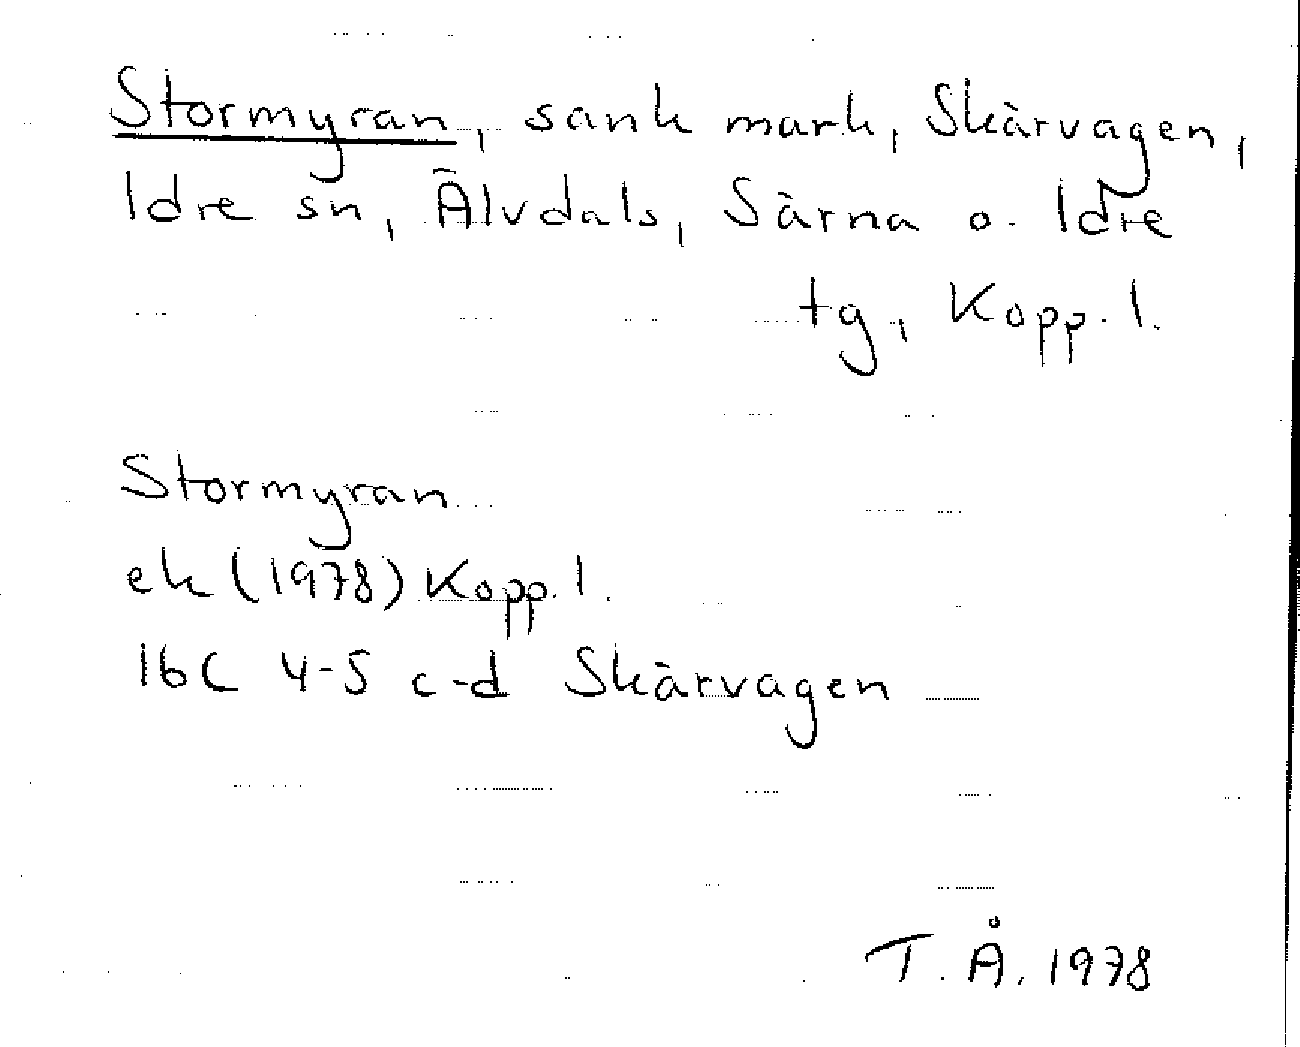 Stormyran, sank mark, Skärvagen,
Idre sn, Älvdals, Särna o. Idre
tg, Kopp. l.
Stormyran
ek (1978) Kopp. l.
16C 4-5 c-d Skärvagen
T. Å. 1978